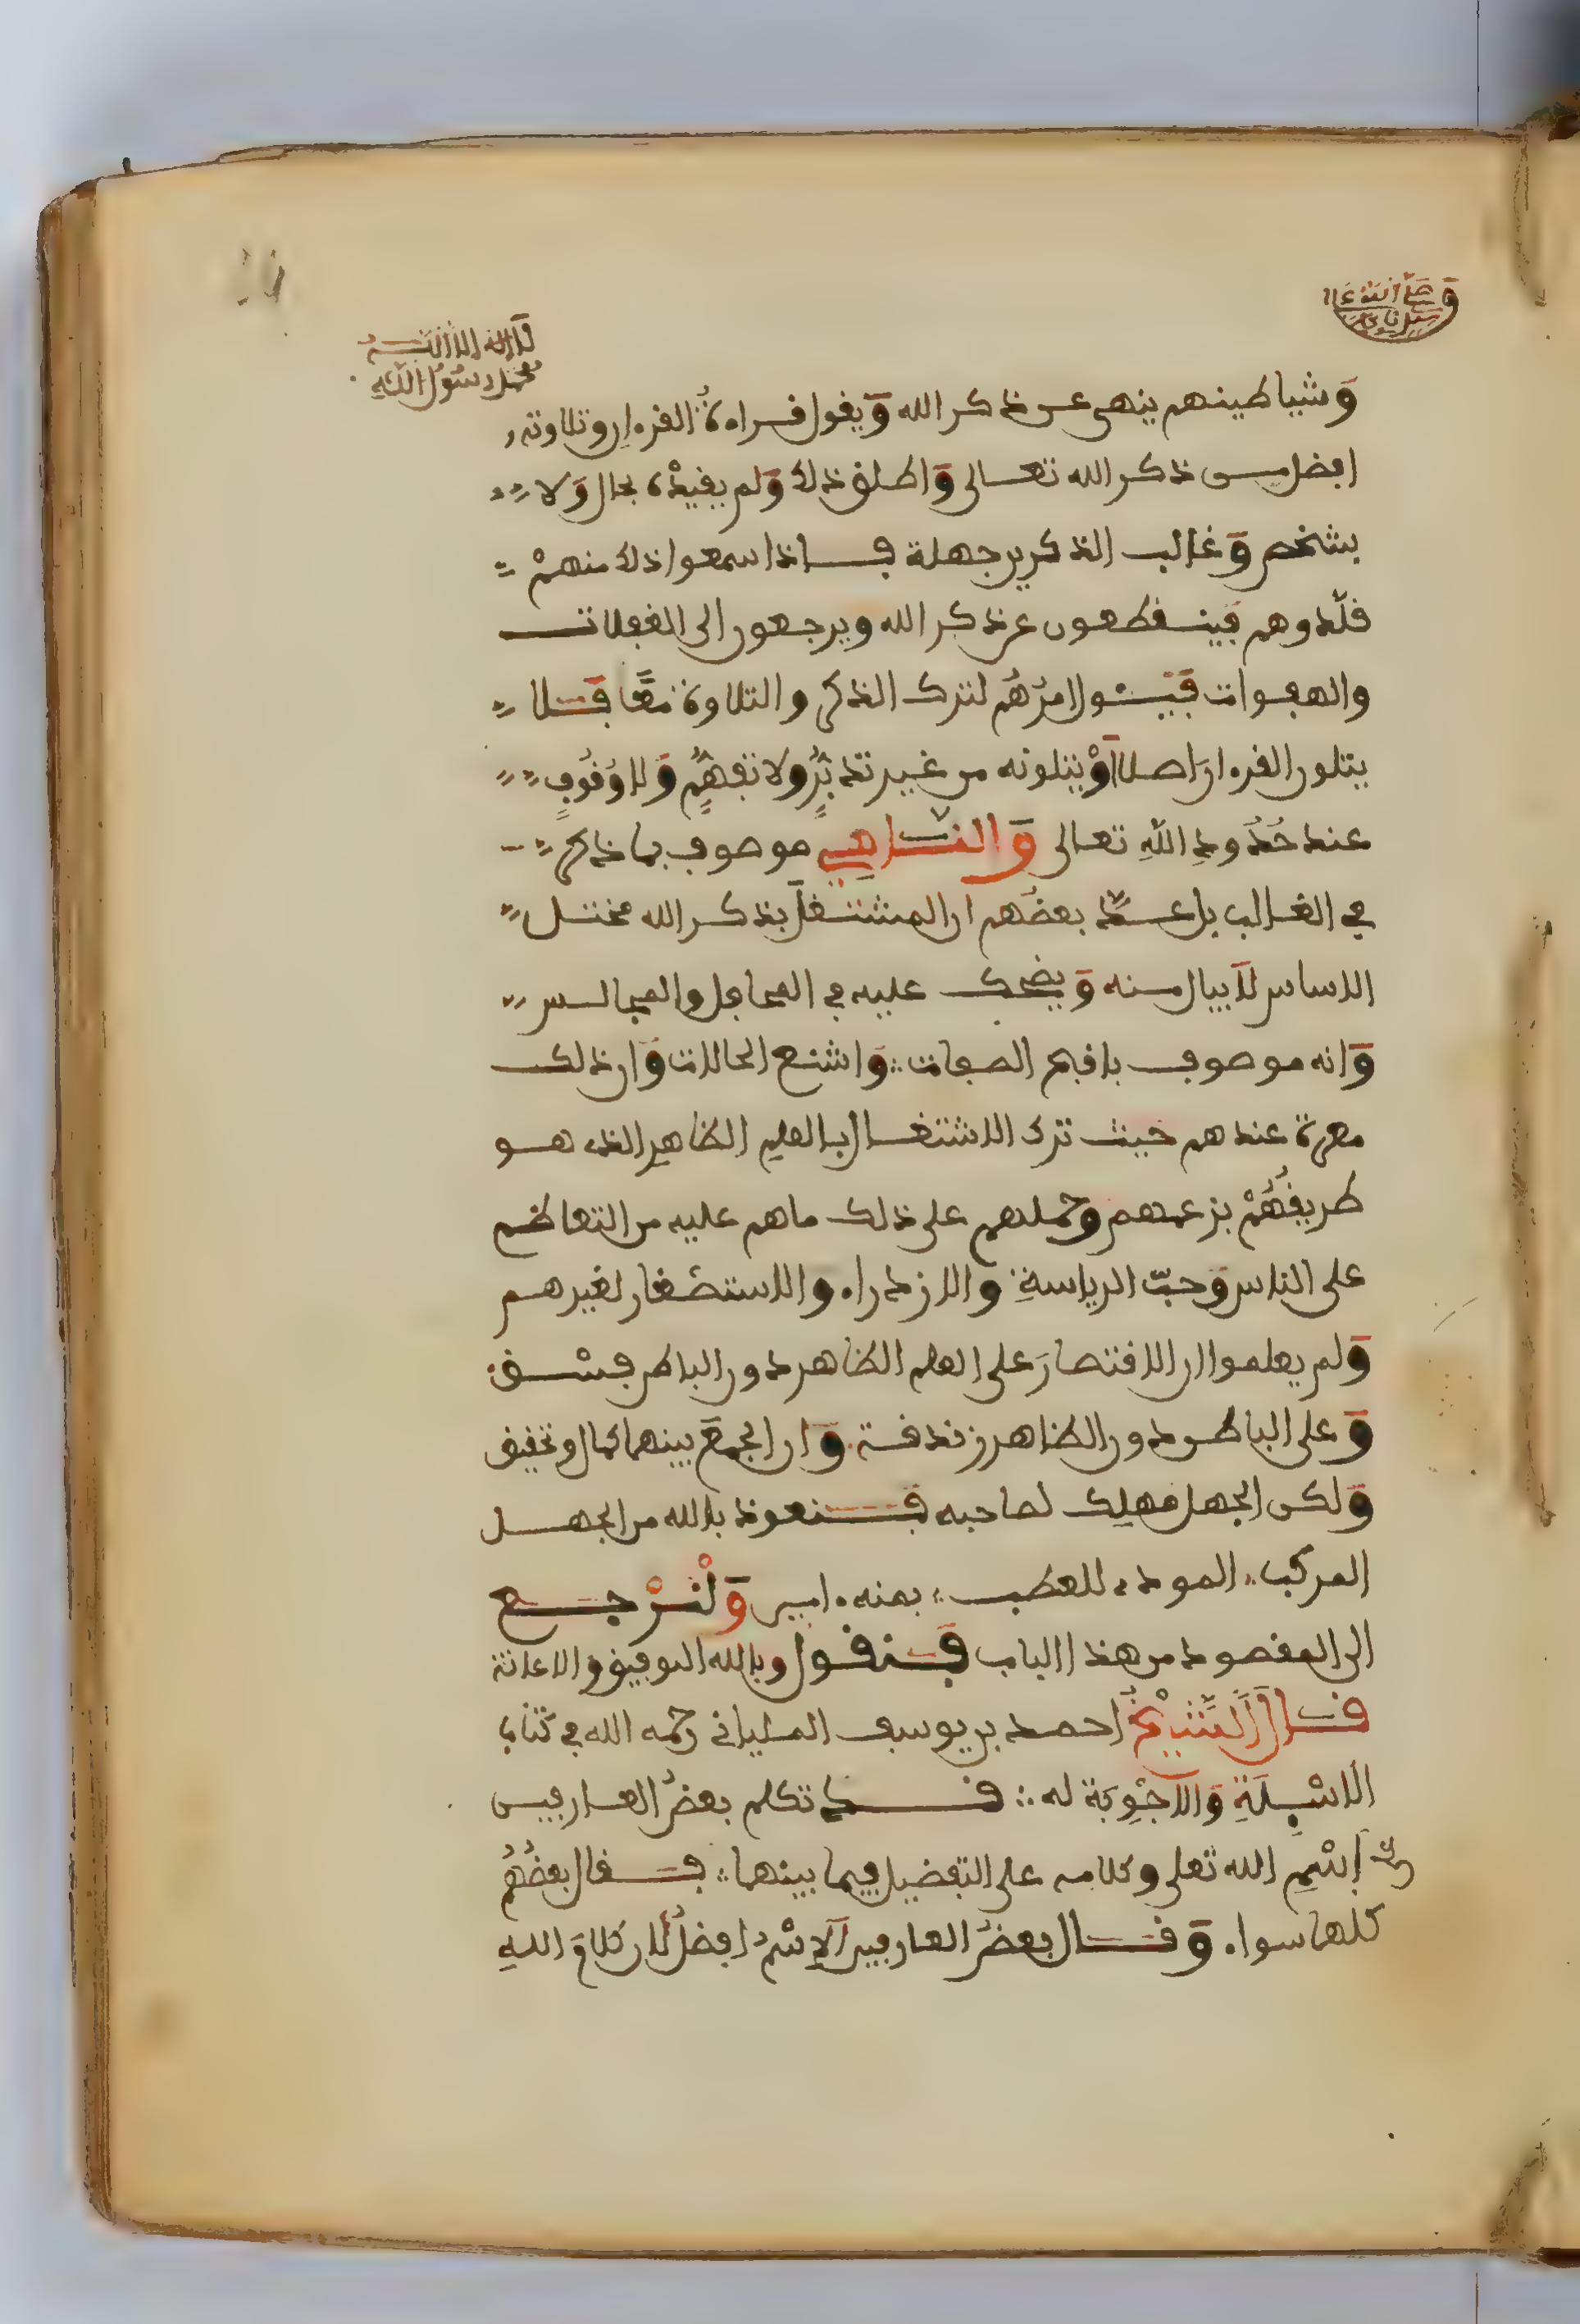 وصلى الله على
سيدنا محمد
لا اله الا الله
محمد رسول الله
وشياطينهم ينهى عن ذكر الله ويقول قراءة القرءان وتلاوته
افضل من ذكر الله تعالى واطلق ذلك ولم يقيده بحال ولا
بشخص وغالب الذكرين جهلة فاذا سمعوا ذلك منهم
قلّدوهم فينقطعون عن ذكر الله ويرجعون الى الغفلات
والهفوات فيئول امرُهُم لترك الذكر والتلاوة معًا فلا
يتلون القرءان اصلا أوْ يتلونه من غير تدبّرٍ ولا تفهّمٍ ولا وُقُوفٍ
عند حُدُودِ اللهِ تعالى والناهي موصوف بما ذكر
في الغالب بل عدّ بعضُهم ان المشتغل بذكر الله مختل
الاساس لا يبال منه ويضحك عليه في المحافل والمجالس
وانه موصوف باقبح الصفات واشنع الحالات وان ذلك
معرة عندهم حيث ترك الاشتغال بالعلم الظاهر الذي هو
طريقُهُمْ بزعمهم وحملهم على ذلك ما هم عليه من التعاظم
على الناس وحبّ الرياسةِ والازدراء والاستصغار لغيرهم
ولم يعلموا ان الاقتصارَ على العلم الظاهر دون الباطن فسْق
وعلى الباطن دون الظاهر زندقة وان الجمعَ بينهما كمال وتحقيق
ولكن الجهل مهلك لصاحبه فنعوذ بالله من الجهل
المركب المودي للعطب بمنه ءامين وَلْنَرْجع
الى المقصود من هذا الباب فنقول وبالله التوفيق والاعانة
قال الشيخُ احمد بن يوسف الملياني رحمه الله في كتاب
الاسْئِلَةِ وَالاجْوِبَة له قد تكلم بعضُ العارفين
في إسْمِ الله تعلى وكلامه على التفضيل فيما بينهما فقال بعضُهُم
كلهما سواء وقال بعضُ العارفين الاِسْمُ افضلُ لان كلامَ اللهِ